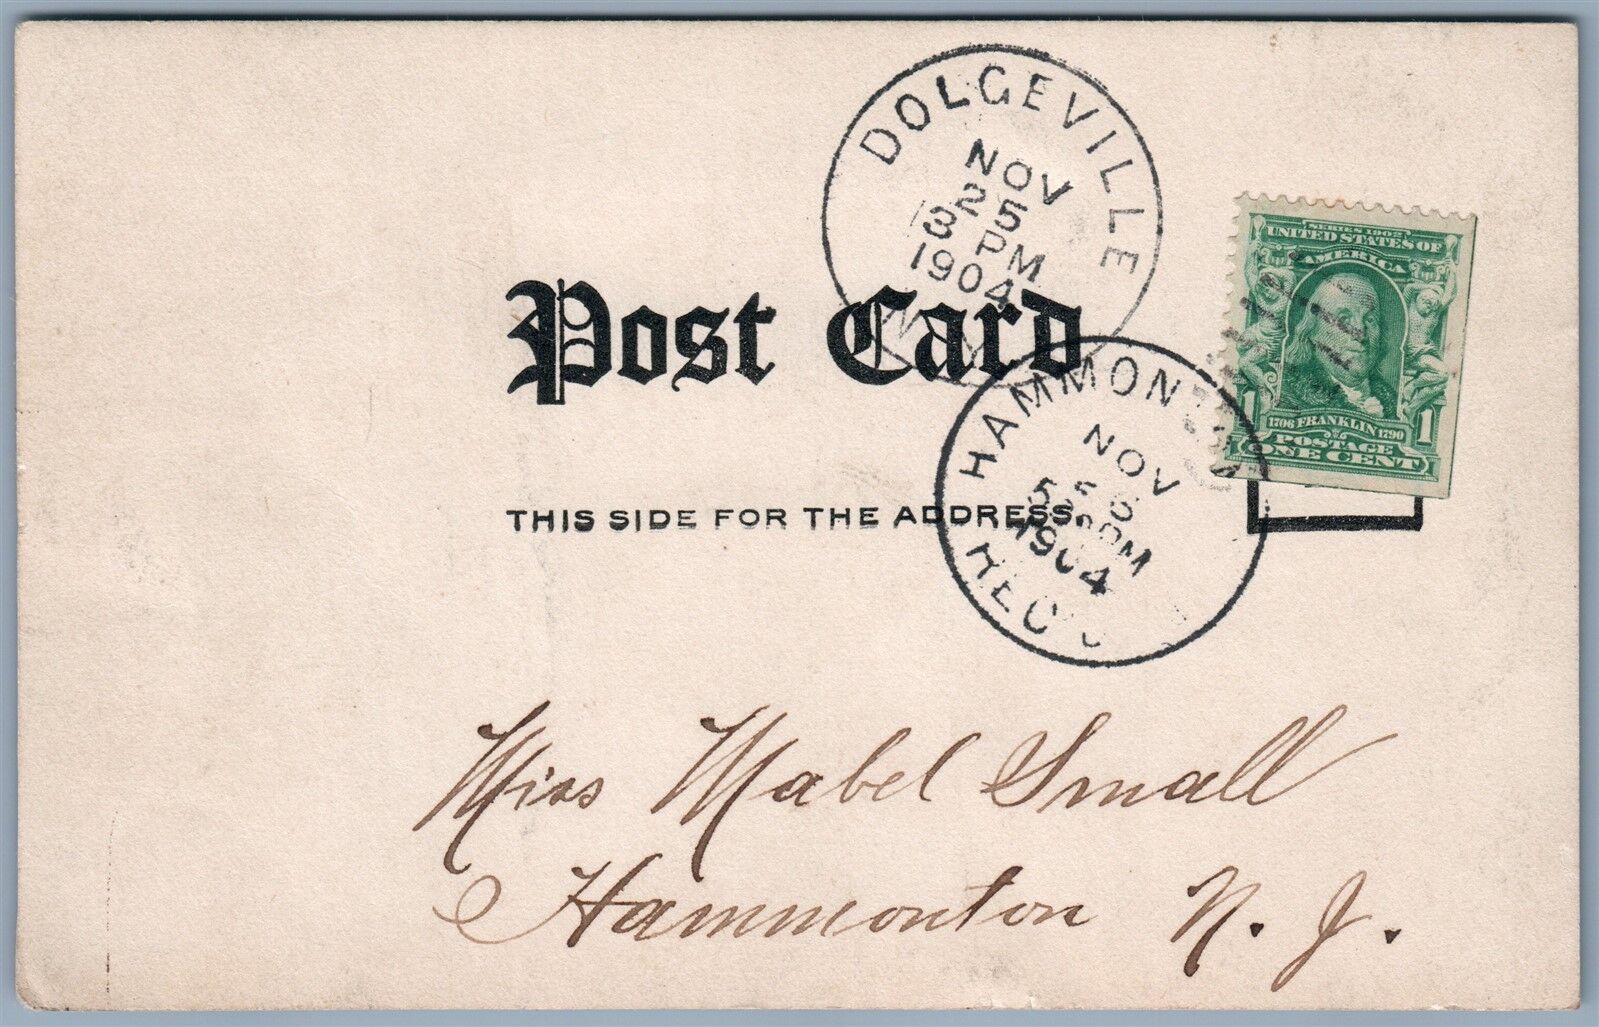 DOLGEVILLE
NOV
25
3 PM
1904
N.Y.
Post Card
THIS SIDE FOR THE ADDRESS.
HAMMONT
NOV
5 PM
1904
REC'D
SERIES 1902
UNITED STATES OF
AMERICA
1 1
1706 FRANKLIN 1790
POSTAGE
ONE CENT
Miss Mabel Small
Hammonton N. J.